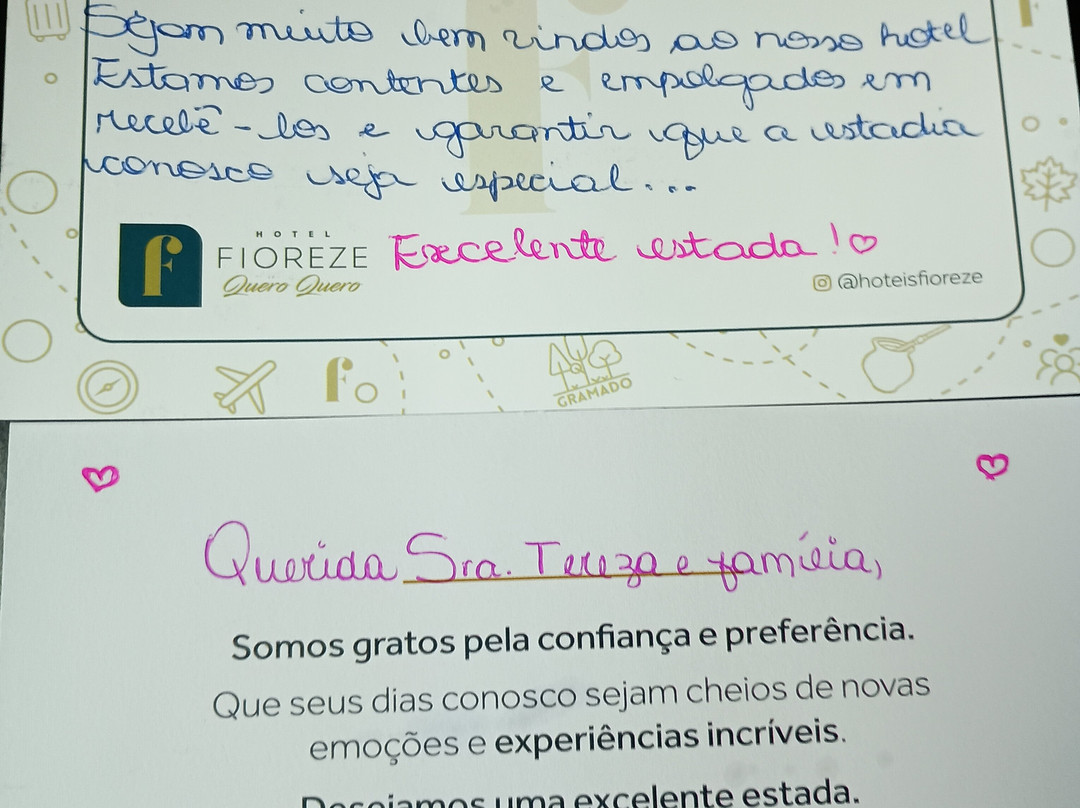 Sejam muito bem vindos ao nosso hotel
Estamos contentes e empolgados em
recebê-los e garantir que a estadia
conosco seja especial...
HOTEL
FIOREZE
Quero Quero
Excelente estada!
@hoteisfioreze
GRAMADO
Querida Sra. Tereza e família,
Somos gratos pela confiança e preferência.
Que seus dias conosco sejam cheios de novas
emoções e experiências incríveis.
Desejamos uma excelente estada.